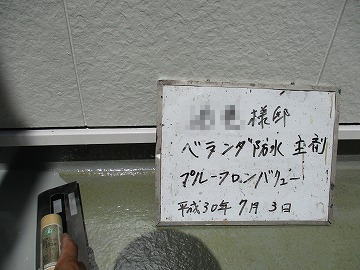 様邸
ベランダ防水 主剤
プルーフロンバリュー
平成30年 7月 3日